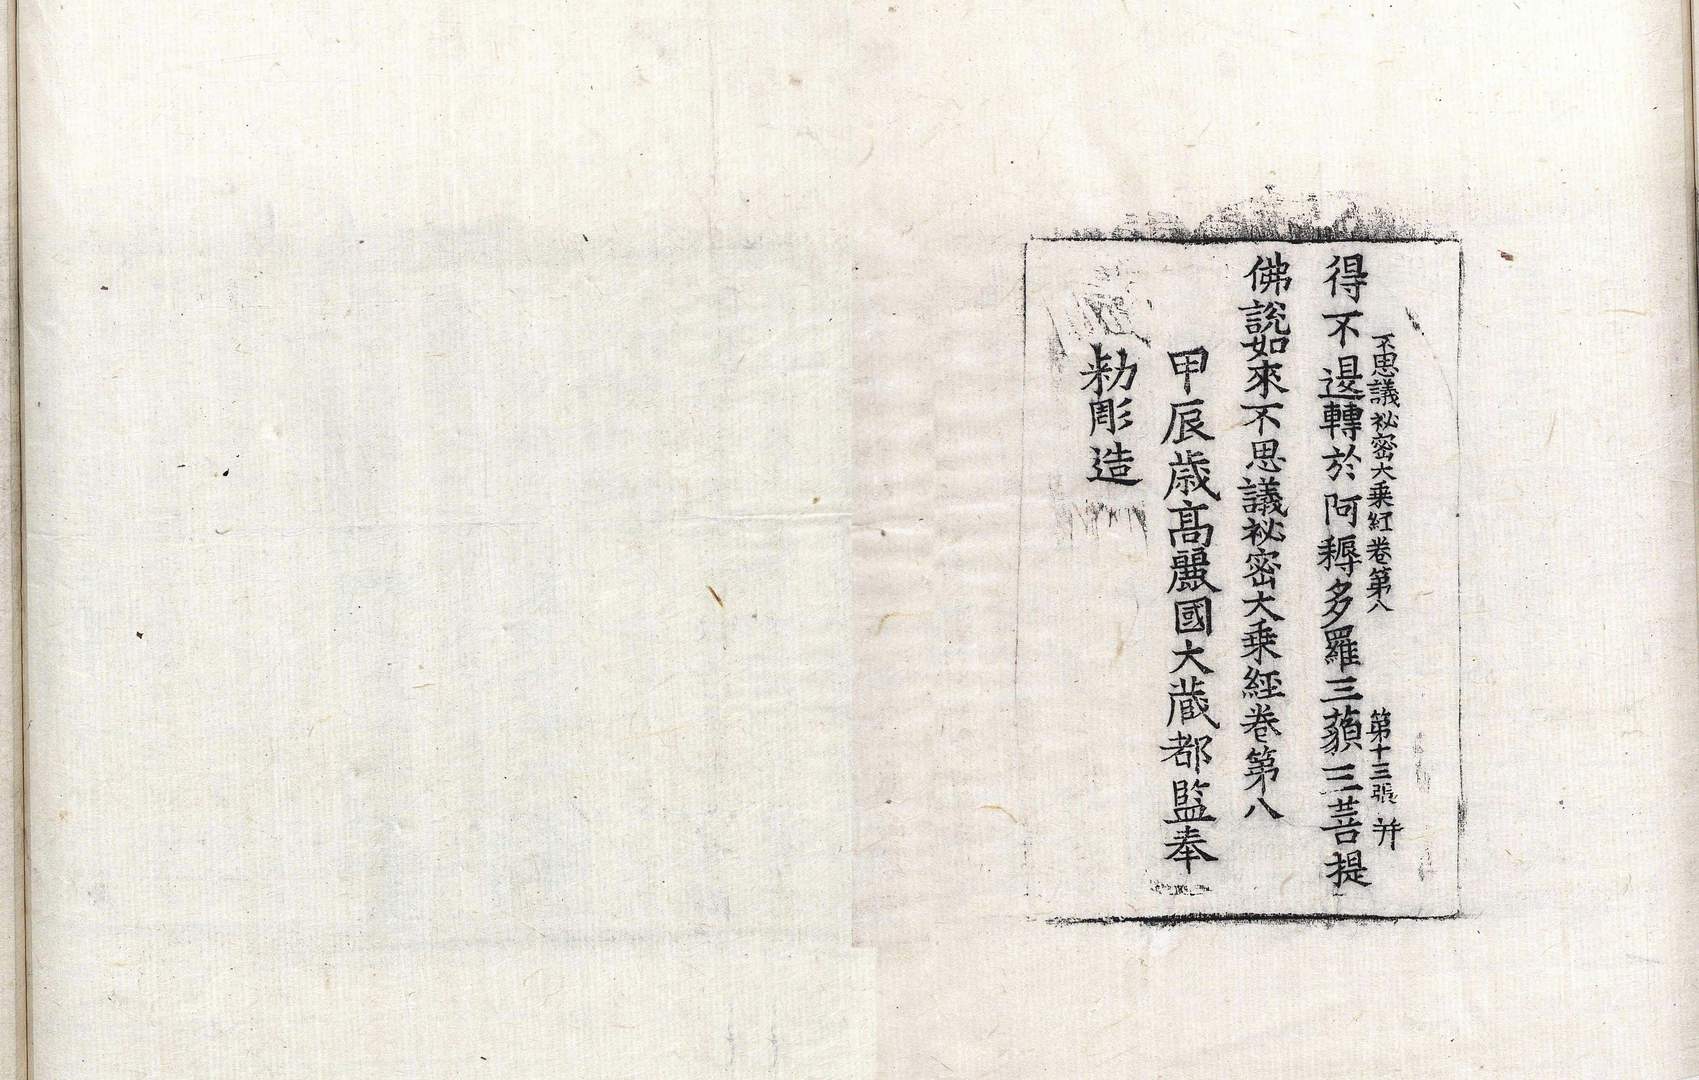 不思議祕密大乗経卷第八 第十三張 并
得不退轉於阿耨多羅三藐三菩提
佛說如來不思議祕密大乗經卷第八
甲辰歲髙麗國大蔵都監奉
勑彫造